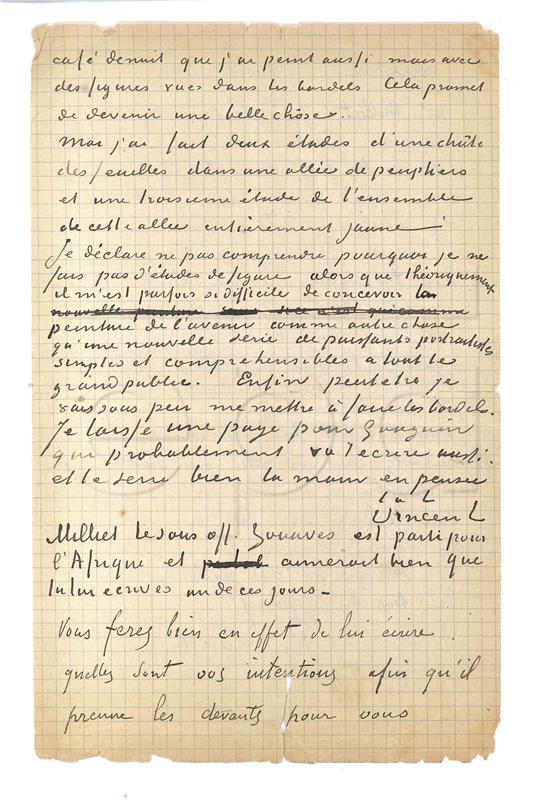 café de nuit que j'ai peint aussi mais avec
des figures vues dans les bordels. Cela promet
de devenir une belle chôse.
Moi j'ai fait deux études d'une chûte
des feuilles dans une allée de peupliers
et une troisieme étude de l'ensemble
de cette allée entièrement jaune.
Je déclare ne pas comprendre pourquoi je ne
fais pas d'études de figure alors que théoriquement
il m'est parfois si difficile de concevoir la
nouvelle peinture c'est que comme
peinture de l'avenir comme autre chose
qu'une nouvelle serie de puissants portraitistes
simples et comprehensibles à tout le
grand public. Enfin peut etre je
vais sous peu me mettre à faire les bordels.
Je laisse une page pour Gauguin
qui probablement va t'ecrire aussi.
et te serre bien la main en pensee
t. à t.
Vincent
Milliet le sous off. Zouaves est parti pour
l'Afrique et aimerait bien que
tu lui ecrives un de ces jours_
Vous ferez bien en effet de lui écrire
quelles sont vos intentions afin qu'il
prenne les devants pour vous